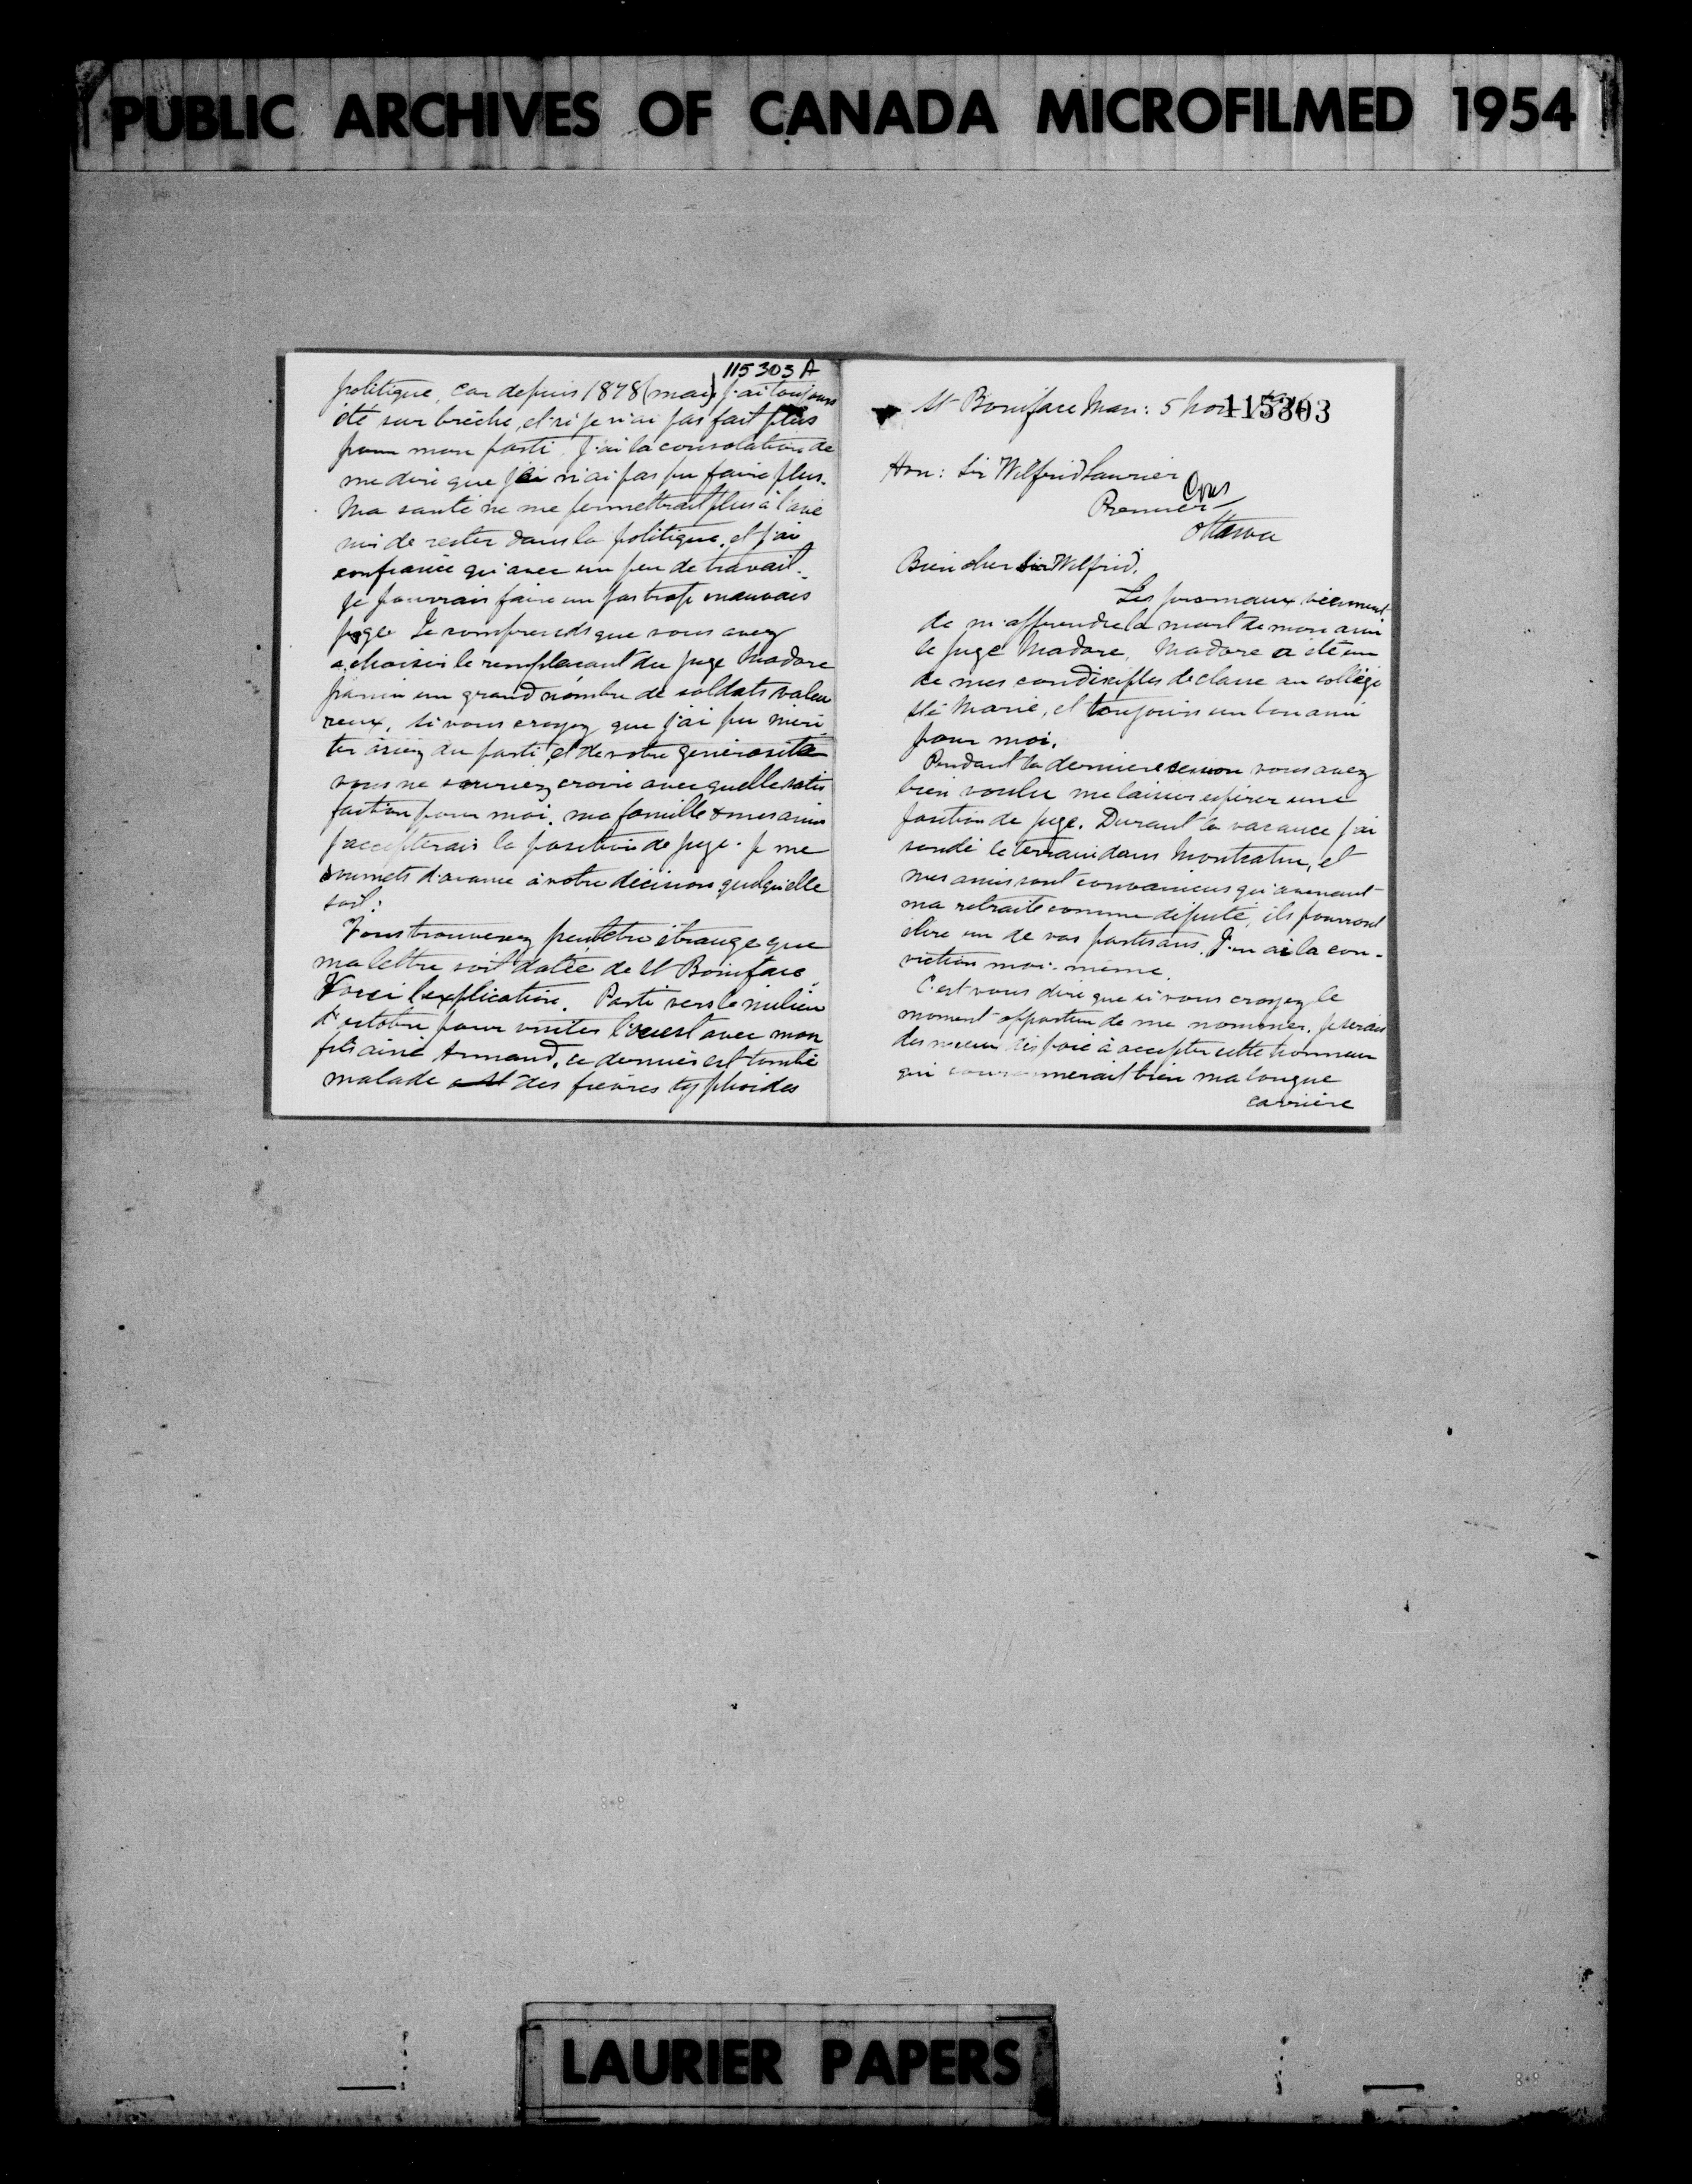 PUBLIC ARCHIVES OF CANADA MICROFILMED 1954
115303 A
politique, car depuis 1878 (mai) j'ai toujours
été sur brèche, et si je n'ai pas fait plus
pour mon parti j'ai la consolation de
me dire que je n'ai pas pu faire plus.
Ma santé ne me permettrait plus à l'ave
nir de rester dans la politique, et j'ai
confiance qu'avec un peu de travail
je pourrais faire un pas trop mauvais
juge Je comprends que vous avez
à choisir le remplacant du juge Madore
parmi un grand nombre de soldats valeu
reux, si vous croyez que j'ai pu méri
ter assez du parti et de votre générosité
vous ne sauriez croire avec quelle satis
faction pour moi, ma famille & mes amis
j'accepterais la position de juge. Je me
soumets d'avance à votre décision quelqu'elle
soit.
Vous trouverez peutêtre étrange que
ma lettre soit datée de St Boniface
Voici l'explication. Parti vers le milieu
d'octobre pour visiter l'ouest avec mon
fils ainé Armand, ce dernier est tombé
malade des fièvres typhoides
St Boniface Man: 5 Nov
115303
Hon: Sir Wilfrid Laurier
Premier
Ottawa
Bien cher Sir Wilfrid,
Les journaux viennent
de m'apprendre la mort de mon ami
le juge Madore, Madore a été un
de mes condisciples de classe au collège
Ste Marie, et toujours un bon ami
pour moi.
Pendant la derniere session vous avez
bien voulu me laisser espérer une
position de juge. Durant la vacance j'ai
sondé le terrain dans Montcalm, et
mes amis sont convaincus qu'avenant
ma retraite comme député, ils pourront
élire un de vos partisans. J'en ai la con-
viction moi-même.
C'est vous dire que si vous croyez le
moment opportun de me nommer, je serais
des mieux disposé à accepter cette honneur
qui couronnerait bien ma longue
carrière
LAURIER PAPERS